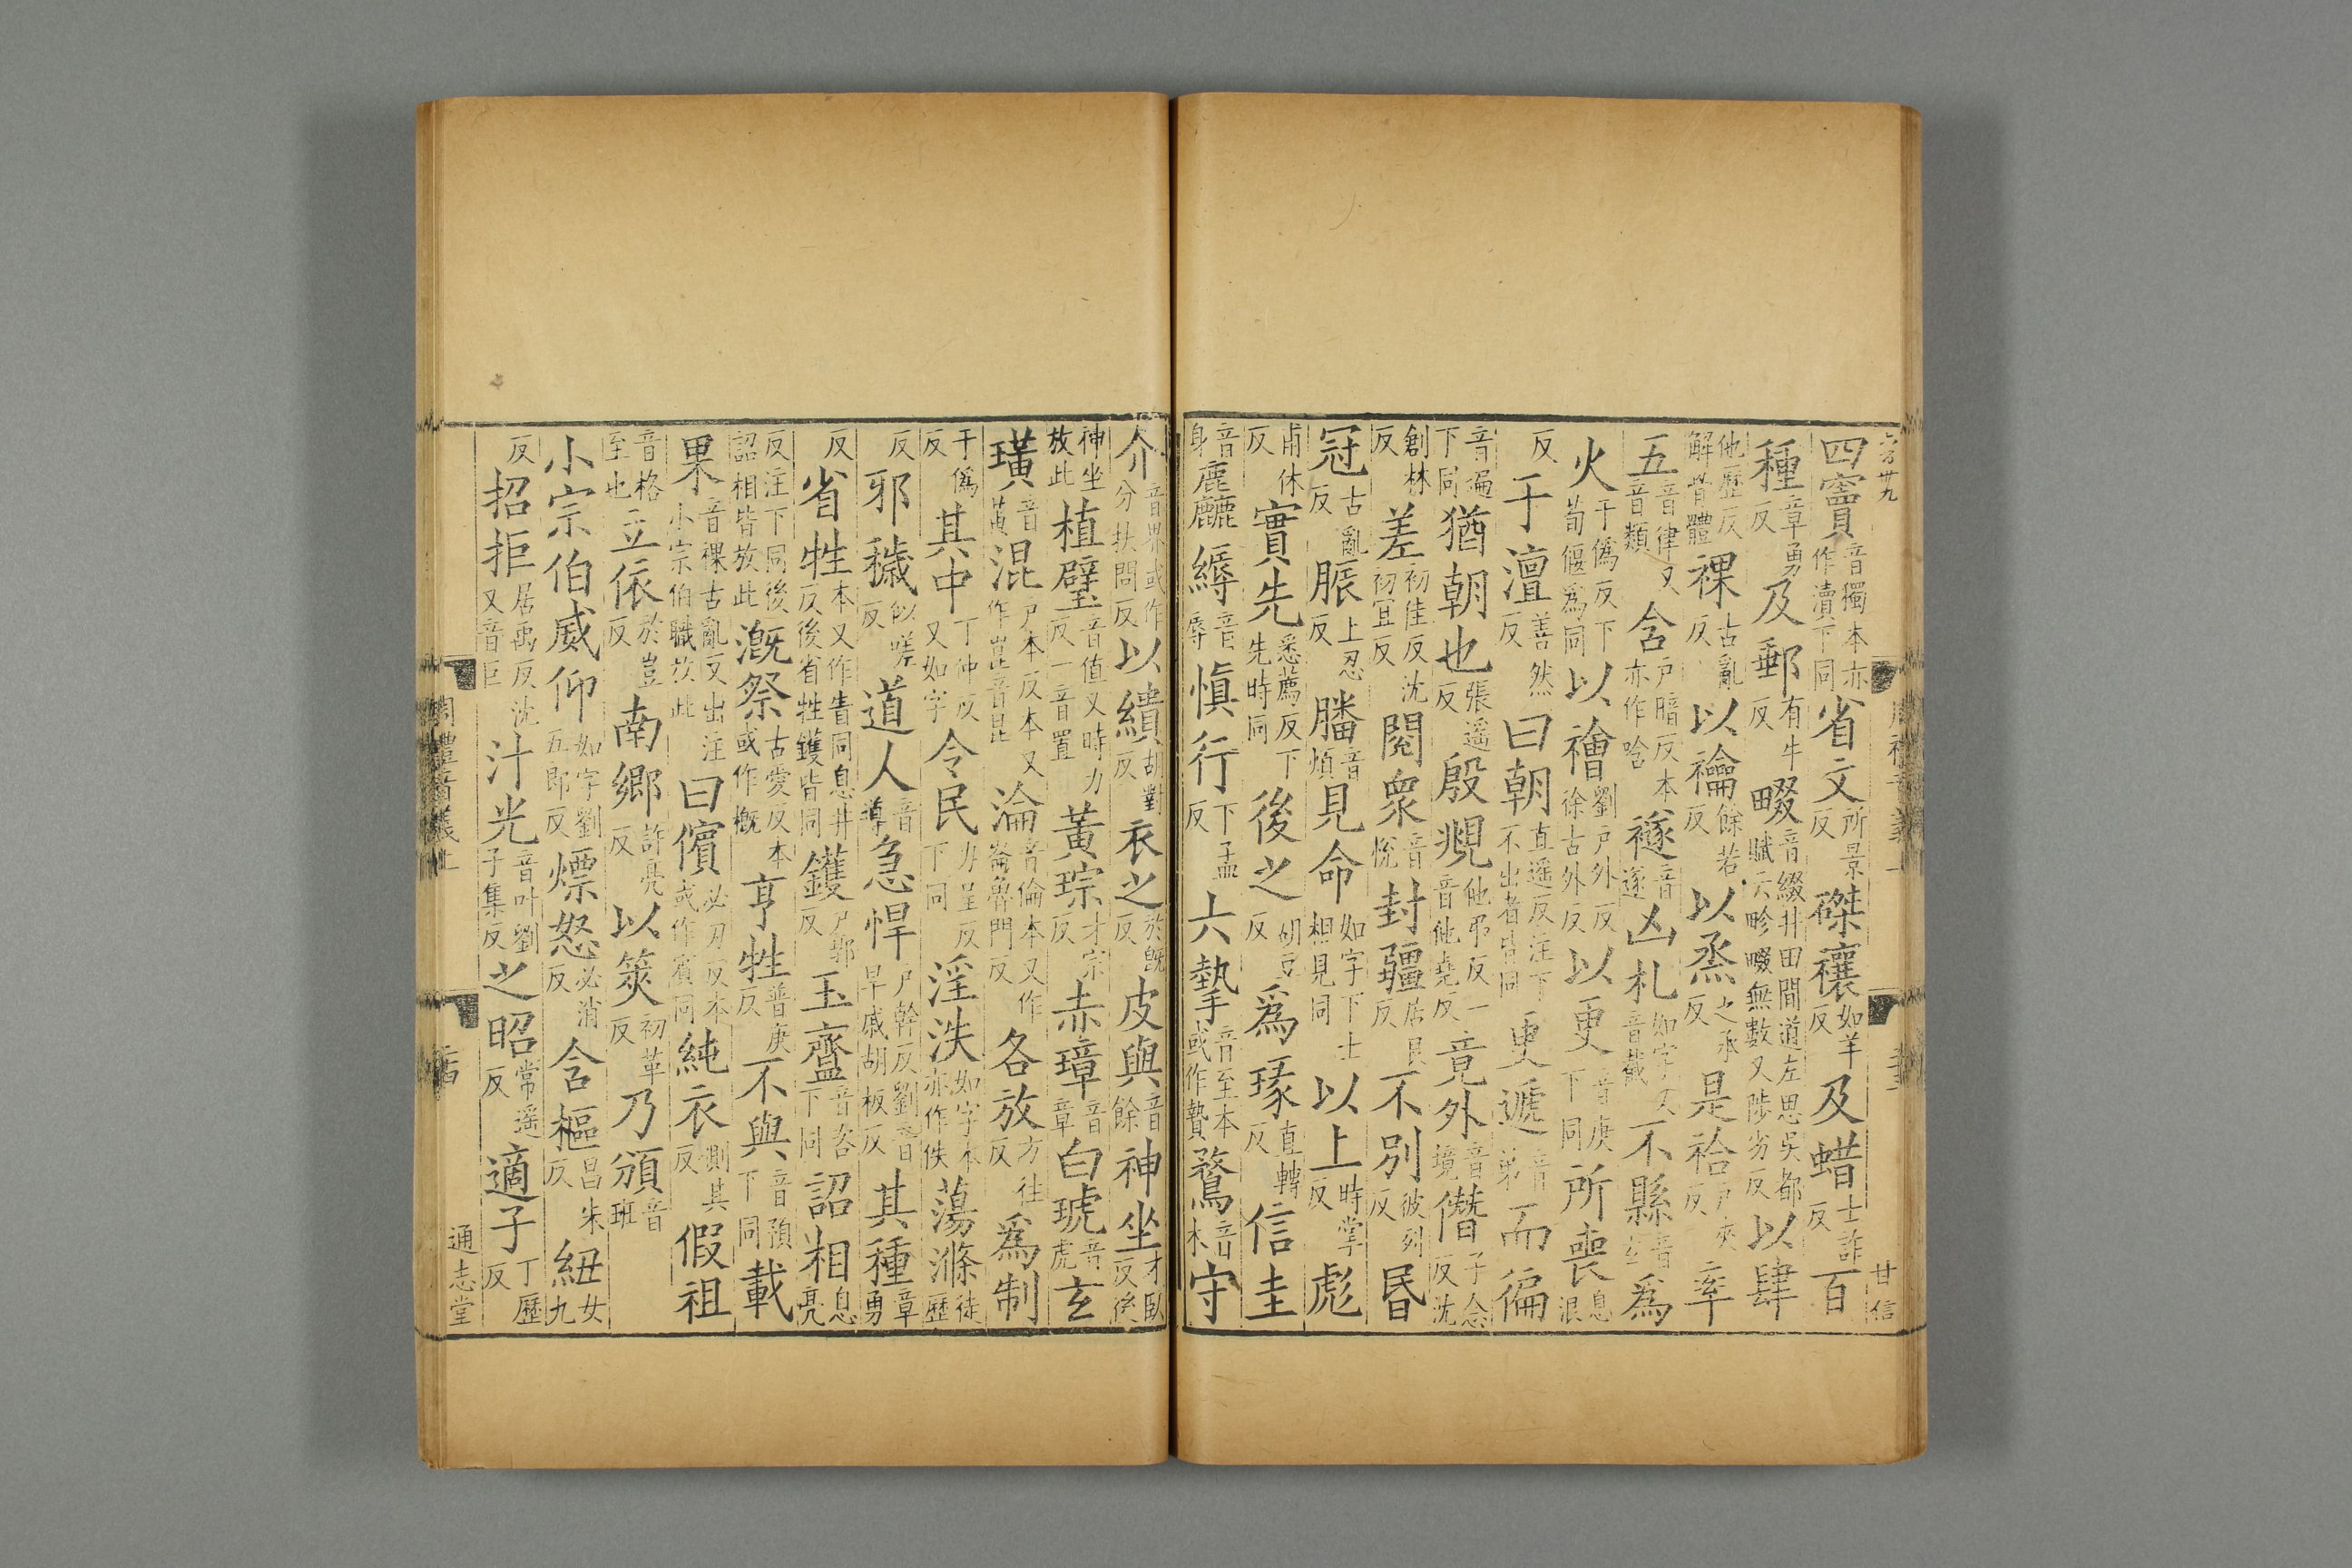 四竇音獨本亦作瀆下同省文所景反磔禳如羊反及蜡士詐反百
種章勇反及郵有牛反畷音綴井田間道左思吳都賦云畛畷無數又陟劣反以肆
他歷反解骨體祼古亂反以禴餘若反以烝之承反是祫戶夾反率
五音律又音類含戶暗反本亦作唅襚音遂凶札如字又音截不縣音玄爲
火于僞反下荀偃爲同以禬劉戶外反徐古外反以更音庚下同所喪息浪
反于澶善然反曰朝直遥反注下不出者皆同更遞音弟而徧
音遍下同猶朝也張遥反殷覜他弔反一音他堯反竟外音境僭子念反沈
創林反差初佳反沈初宜反閱衆音悅封疆居良反不別彼列反昬
冠古亂反脤上忍反膰音煩見命如字下士相見同以上時掌反彪
甫休反實先悉薦反下先時同後之胡豆反爲瑑直轉反信圭
音身麤縟音辱愼行下孟反六摯音至本或作贄鶩音木守
介音界或作分扶問反以繢胡對反衣之於旣反皮與音餘神坐才臥反後
神坐放此植璧音值又時力反一音置黃琮才宗反赤璋音章白琥音虎玄
璜音黃混戶本反本又作崑音昆淪音倫本又作崙魯門反各放方往反爲制
于僞反其中丁仲反又如字令民力呈反下同淫泆如字本亦作佚蕩滌徒歷
反邪穢似嗟反道人音導急悍戶幹反劉音旱戚胡板反其種章勇
反省牲本又作眚同息井反後省牲鑊皆同鑊戶郭反玉齍音咨下同詔相息亮
反注下同後詔相皆放此漑祭古愛反本或作槪亨牲普庚反不與音預下同載
果音祼古亂反出注小宗伯職放此曰儐必刃反本或作賓同純衣側其反假祖
音格至也立依於豈反南鄉許亮反以筴初革反乃頒音班
小宗伯威仰如字劉五郎反熛怒必消反含樞昌朱反紐女九
反招拒居禹反沈又音巨汁光音叶劉子集反之昭常遥反適子丁歷反
通志堂
甘信